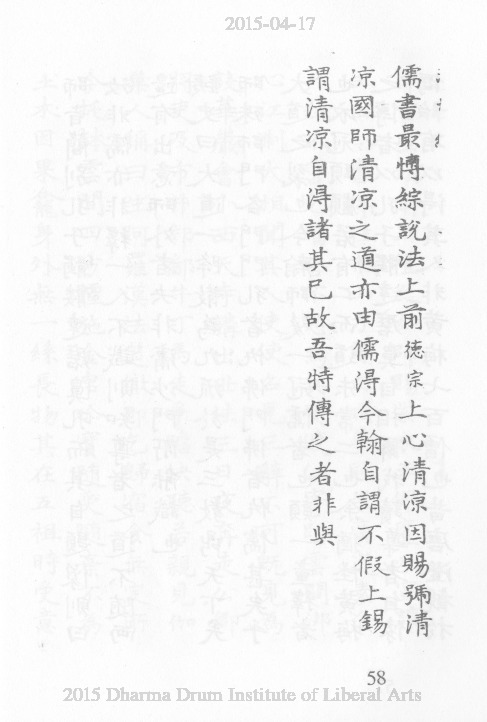 2015-04-17
儒書最慱綜說法上前徳宗上心清凉因賜號清
凉國師清凉之道亦由儒淂今翰自謂不假上錫
謂清凉自淂諸其已故吾特傳之者非與
58
2015 Dharma Drum Institute of Liberal Arts